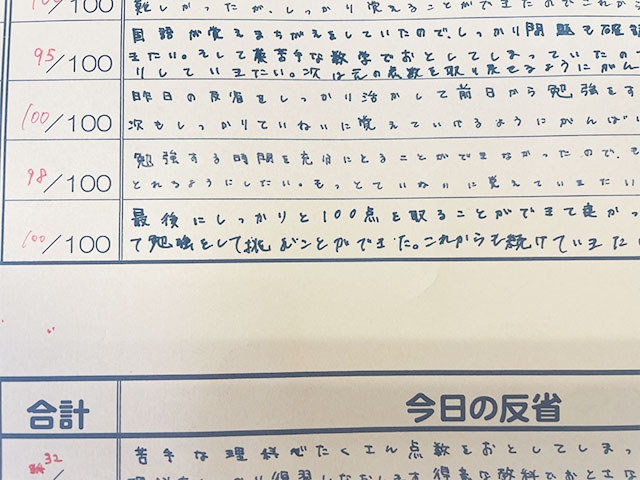 100/100 難しかったが、しっかり覚えることができたのでこれか
95/100 国語が覚えまちがえをしていたので、しっかり問題も確認
きたい。そして最苦手な数学でおとしてしまっていたの
りしていきたい。次は元の点数を取り戻せるようにがん
100/100 昨日の反省をしっかり活かして前日から勉強をす
次もしっかりていねいに覚えていけるようにがんばい
98/100 勉強する時間を充分にとることができなかったので、そ
とれるようにしたい。もっとていねいに覚えていきたい
100/100 最後にしっかりと100点を取ることができて良かっ
て勉強をして挑むことができた。これからも続けていきたい
合計 今日の反省
32 苦手な理科でたくさん点数をおとしてしまっ
復習しなおします得意な教科ひおとさな